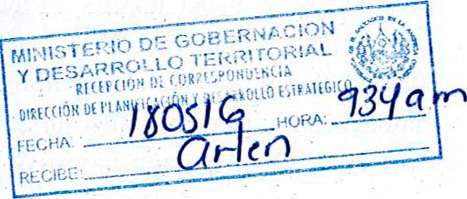 MINISTERIO DE GOBERNACION
Y DESARROLLO TERRITORIAL
RECEPCION DE CORRESPONDENCIA
DIRECCIÓN DE PLANIFICACIÓN Y DESARROLLO ESTRATEGICO
FECHA: 180516 HORA: 934am
RECIBE: Arlen